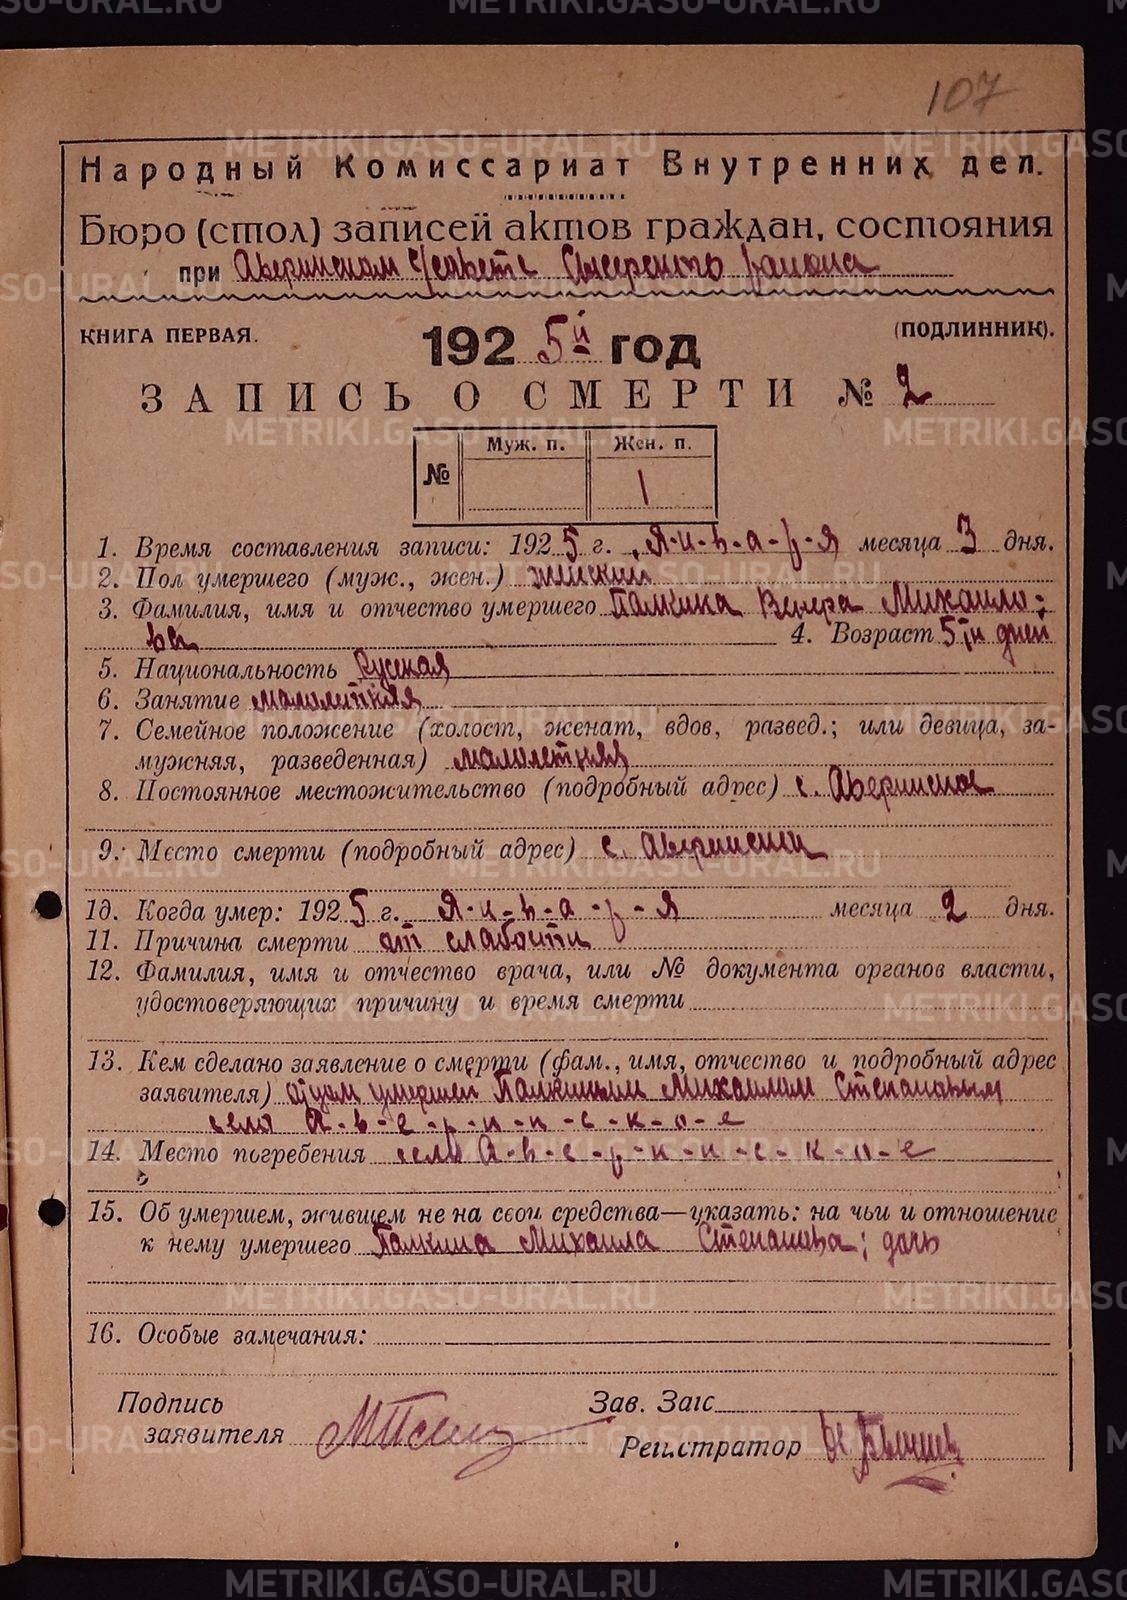 107
Народный Комиссариат Внутренних дел.
Бюро (стол) записей актов граждан, состояния
при Аверинском с/совете Сысертского района
КНИГА ПЕРВАЯ. 1925й год (ПОДЛИННИК).
ЗАПИСЬ О СМЕРТИ № 2
№ Муж. п. Жен. п.
1
1. Время составления записи: 1925 г. Я-н-в-а-р-я месяца 3 дня.
2. Пол умершего (муж., жен.) женский
3. Фамилия, имя и отчество умершего Палкина Венера Михайло-
ва 4. Возраст 5ти дней
5. Национальность Руская
6. Занятие малолетняя
7. Семейное положение (холост, женат, вдов, развед.; или девица, за-
мужняя, разведенная) малолетняя
8. Постоянное местожительство (подробный адрес) с. Аверинское
9. Место смерти (подробный адрес) с.
10. Когда умер: 1925 г. Я-н-в-а-р-я месяца 2 дня.
11. Причина смерти от слабости
12. Фамилия, имя и отчество врача, или № документа органов власти,
удостоверяющих причину и время смерти
13. Кем сделано заявление о смерти (фам., имя, отчество и подробный адрес
заявителя) отцом умершей Палкиным Михаилом Степановым
село А-в-е-р-и-н-с-к-о-е
14. Место погребения село А-в-е-р-и-н-с-к-о-е
15. Об умершем, жившем не на свои средства—указать: на чьи и отношение
к нему умершего Палкина Михаила Степанова; дочь
16. Особые замечания:
Подпись Зав. Загс
заявителя
Регистратор
METRIKI.GASO-URAL.RU